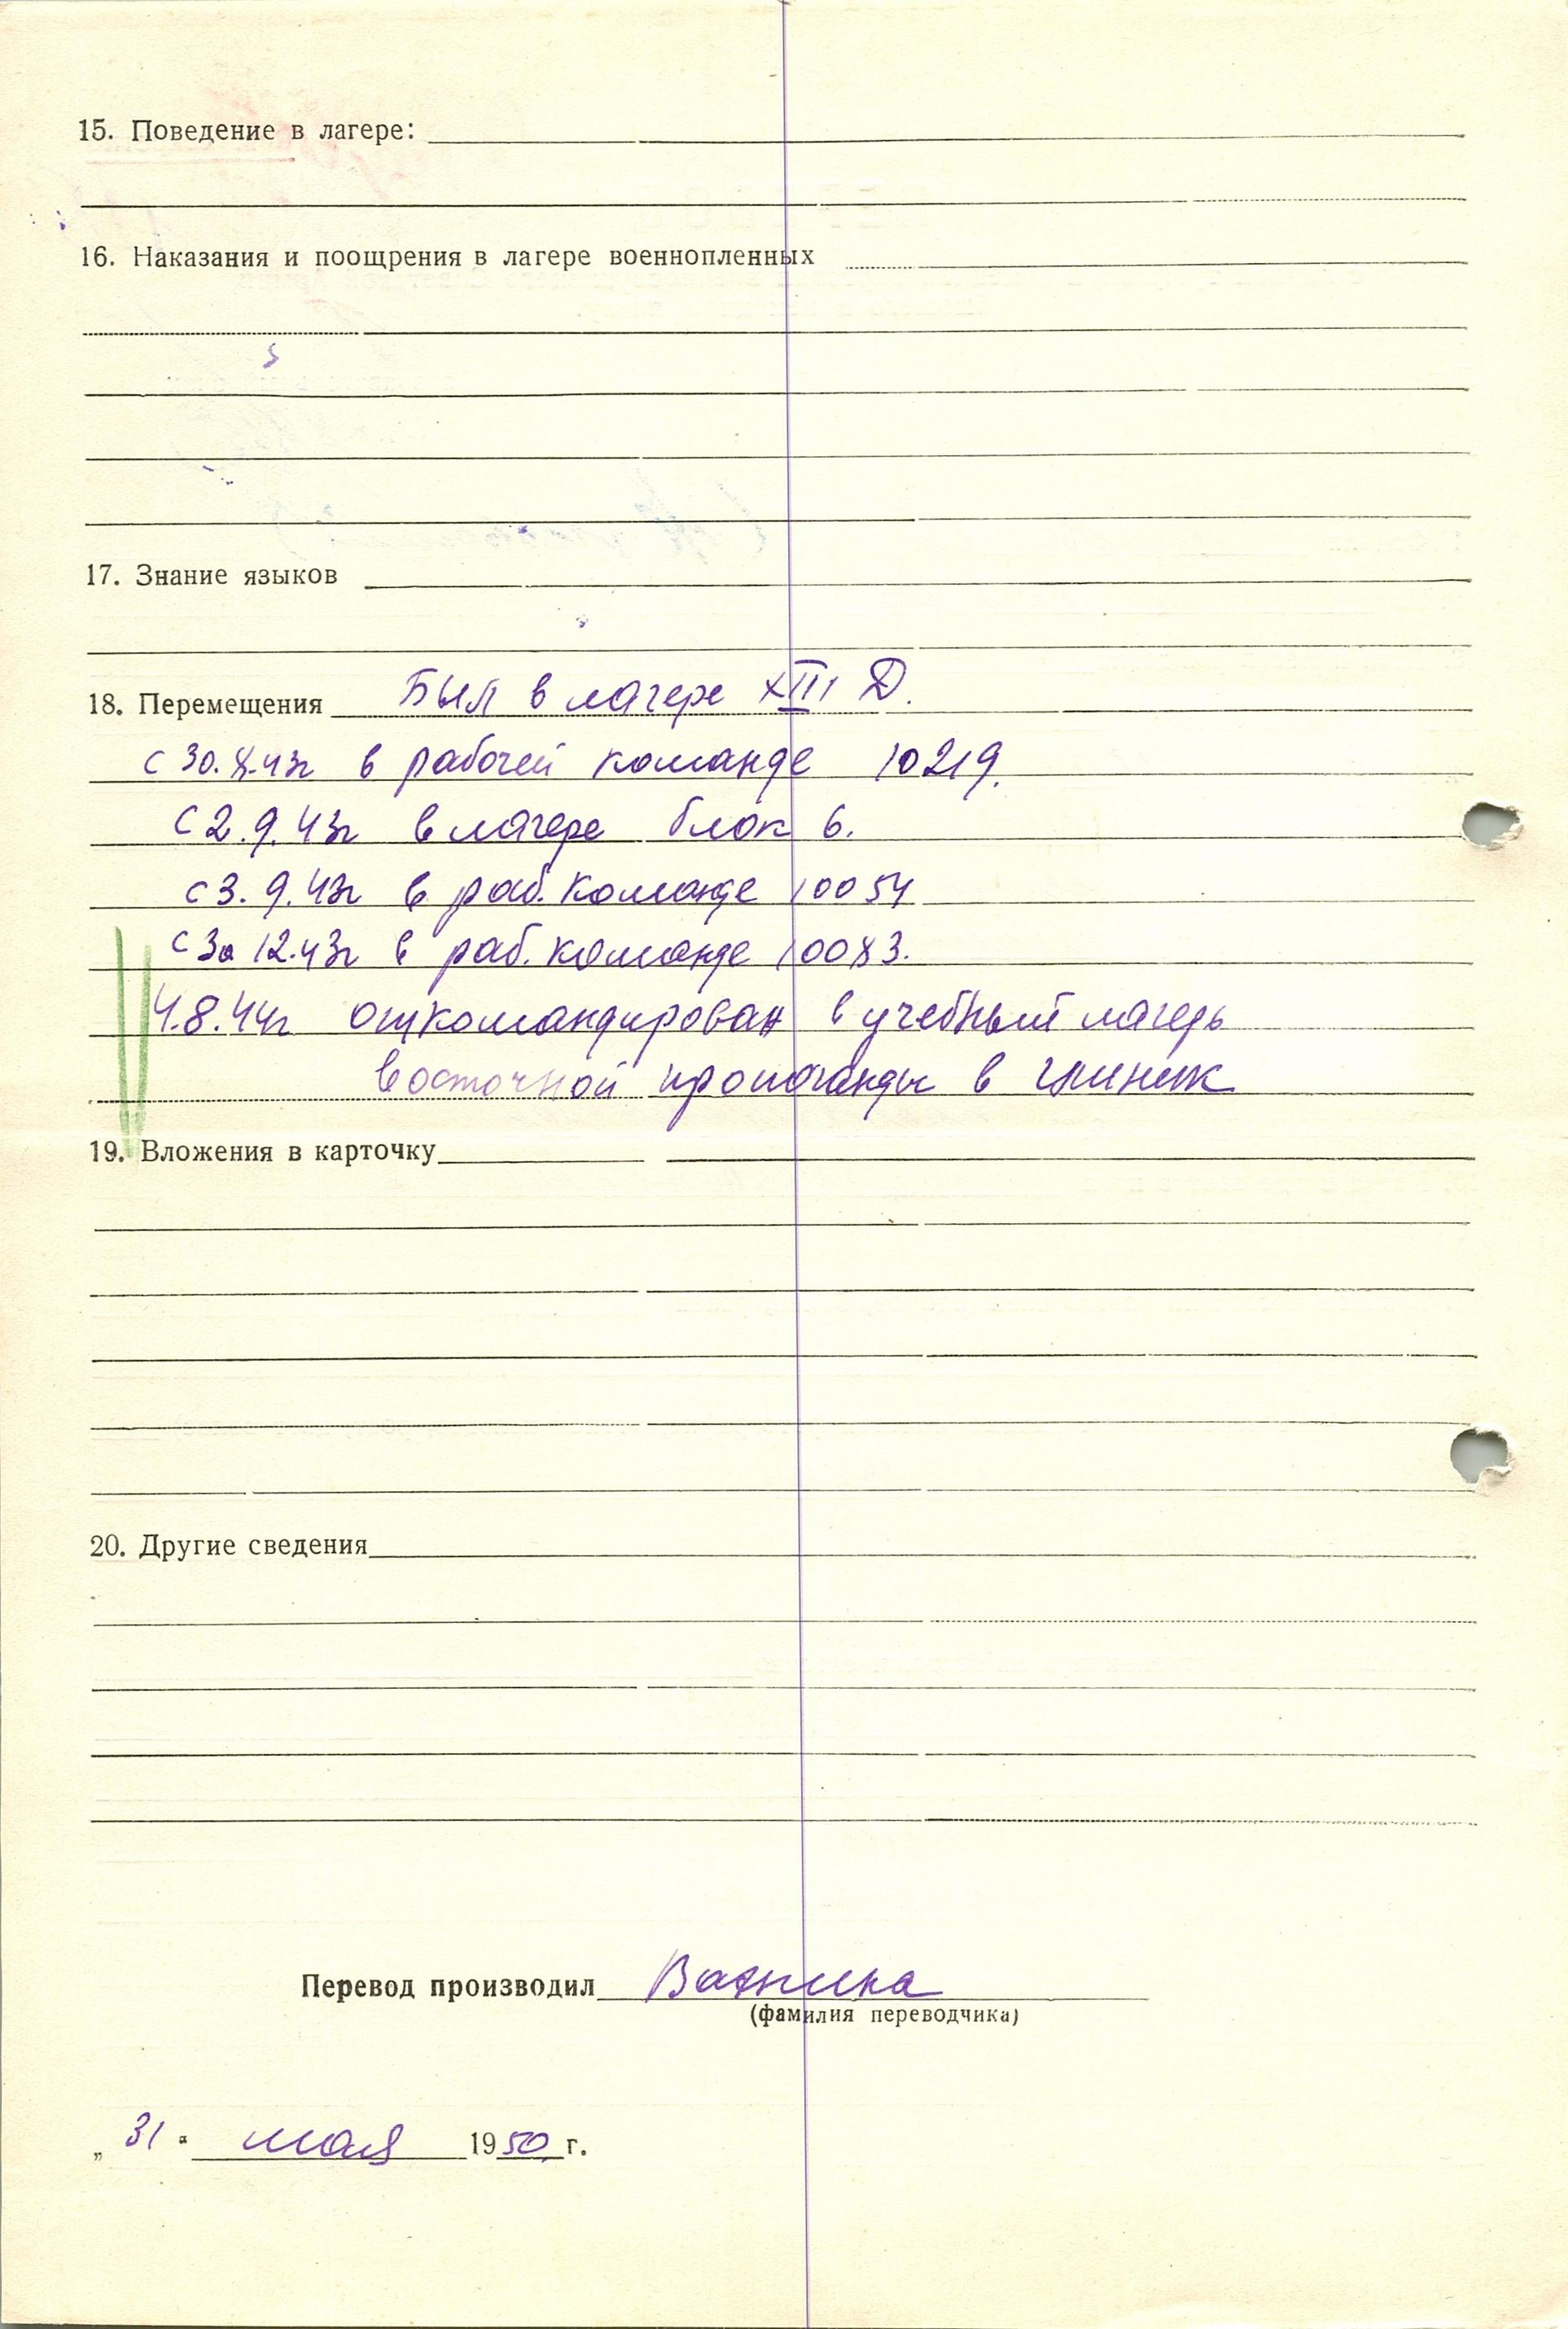 15. Поведение в лагере:
16. Наказания и поощрения в лагере военнопленных
17. Знание языков
18. Перемещения Был в лагере XIII Д.
с 30.8.43г в рабочей команде 10219.
с 2.9.43г в лагере блок 6.
с 3.9.43г в раб. команде 10054
с 30 12.43г в раб. команде 10083.
4.8.44г откомандирован в учебный лагерь
восточной пропаганды в
19. Вложения в карточку
20. Другие сведения
Перевод производил
(фамилия переводчика)
„31" мая 1950 г.